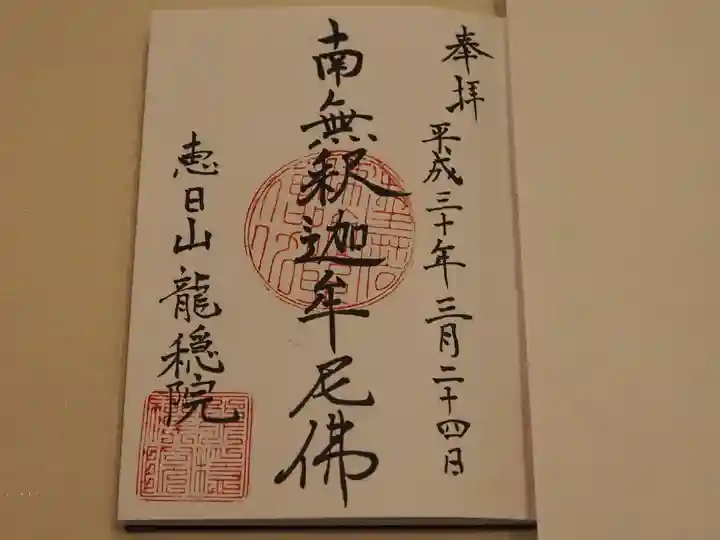 奉拝 平成三十年三月二十四日
南無釈迦牟尼佛
恵日山龍穏院